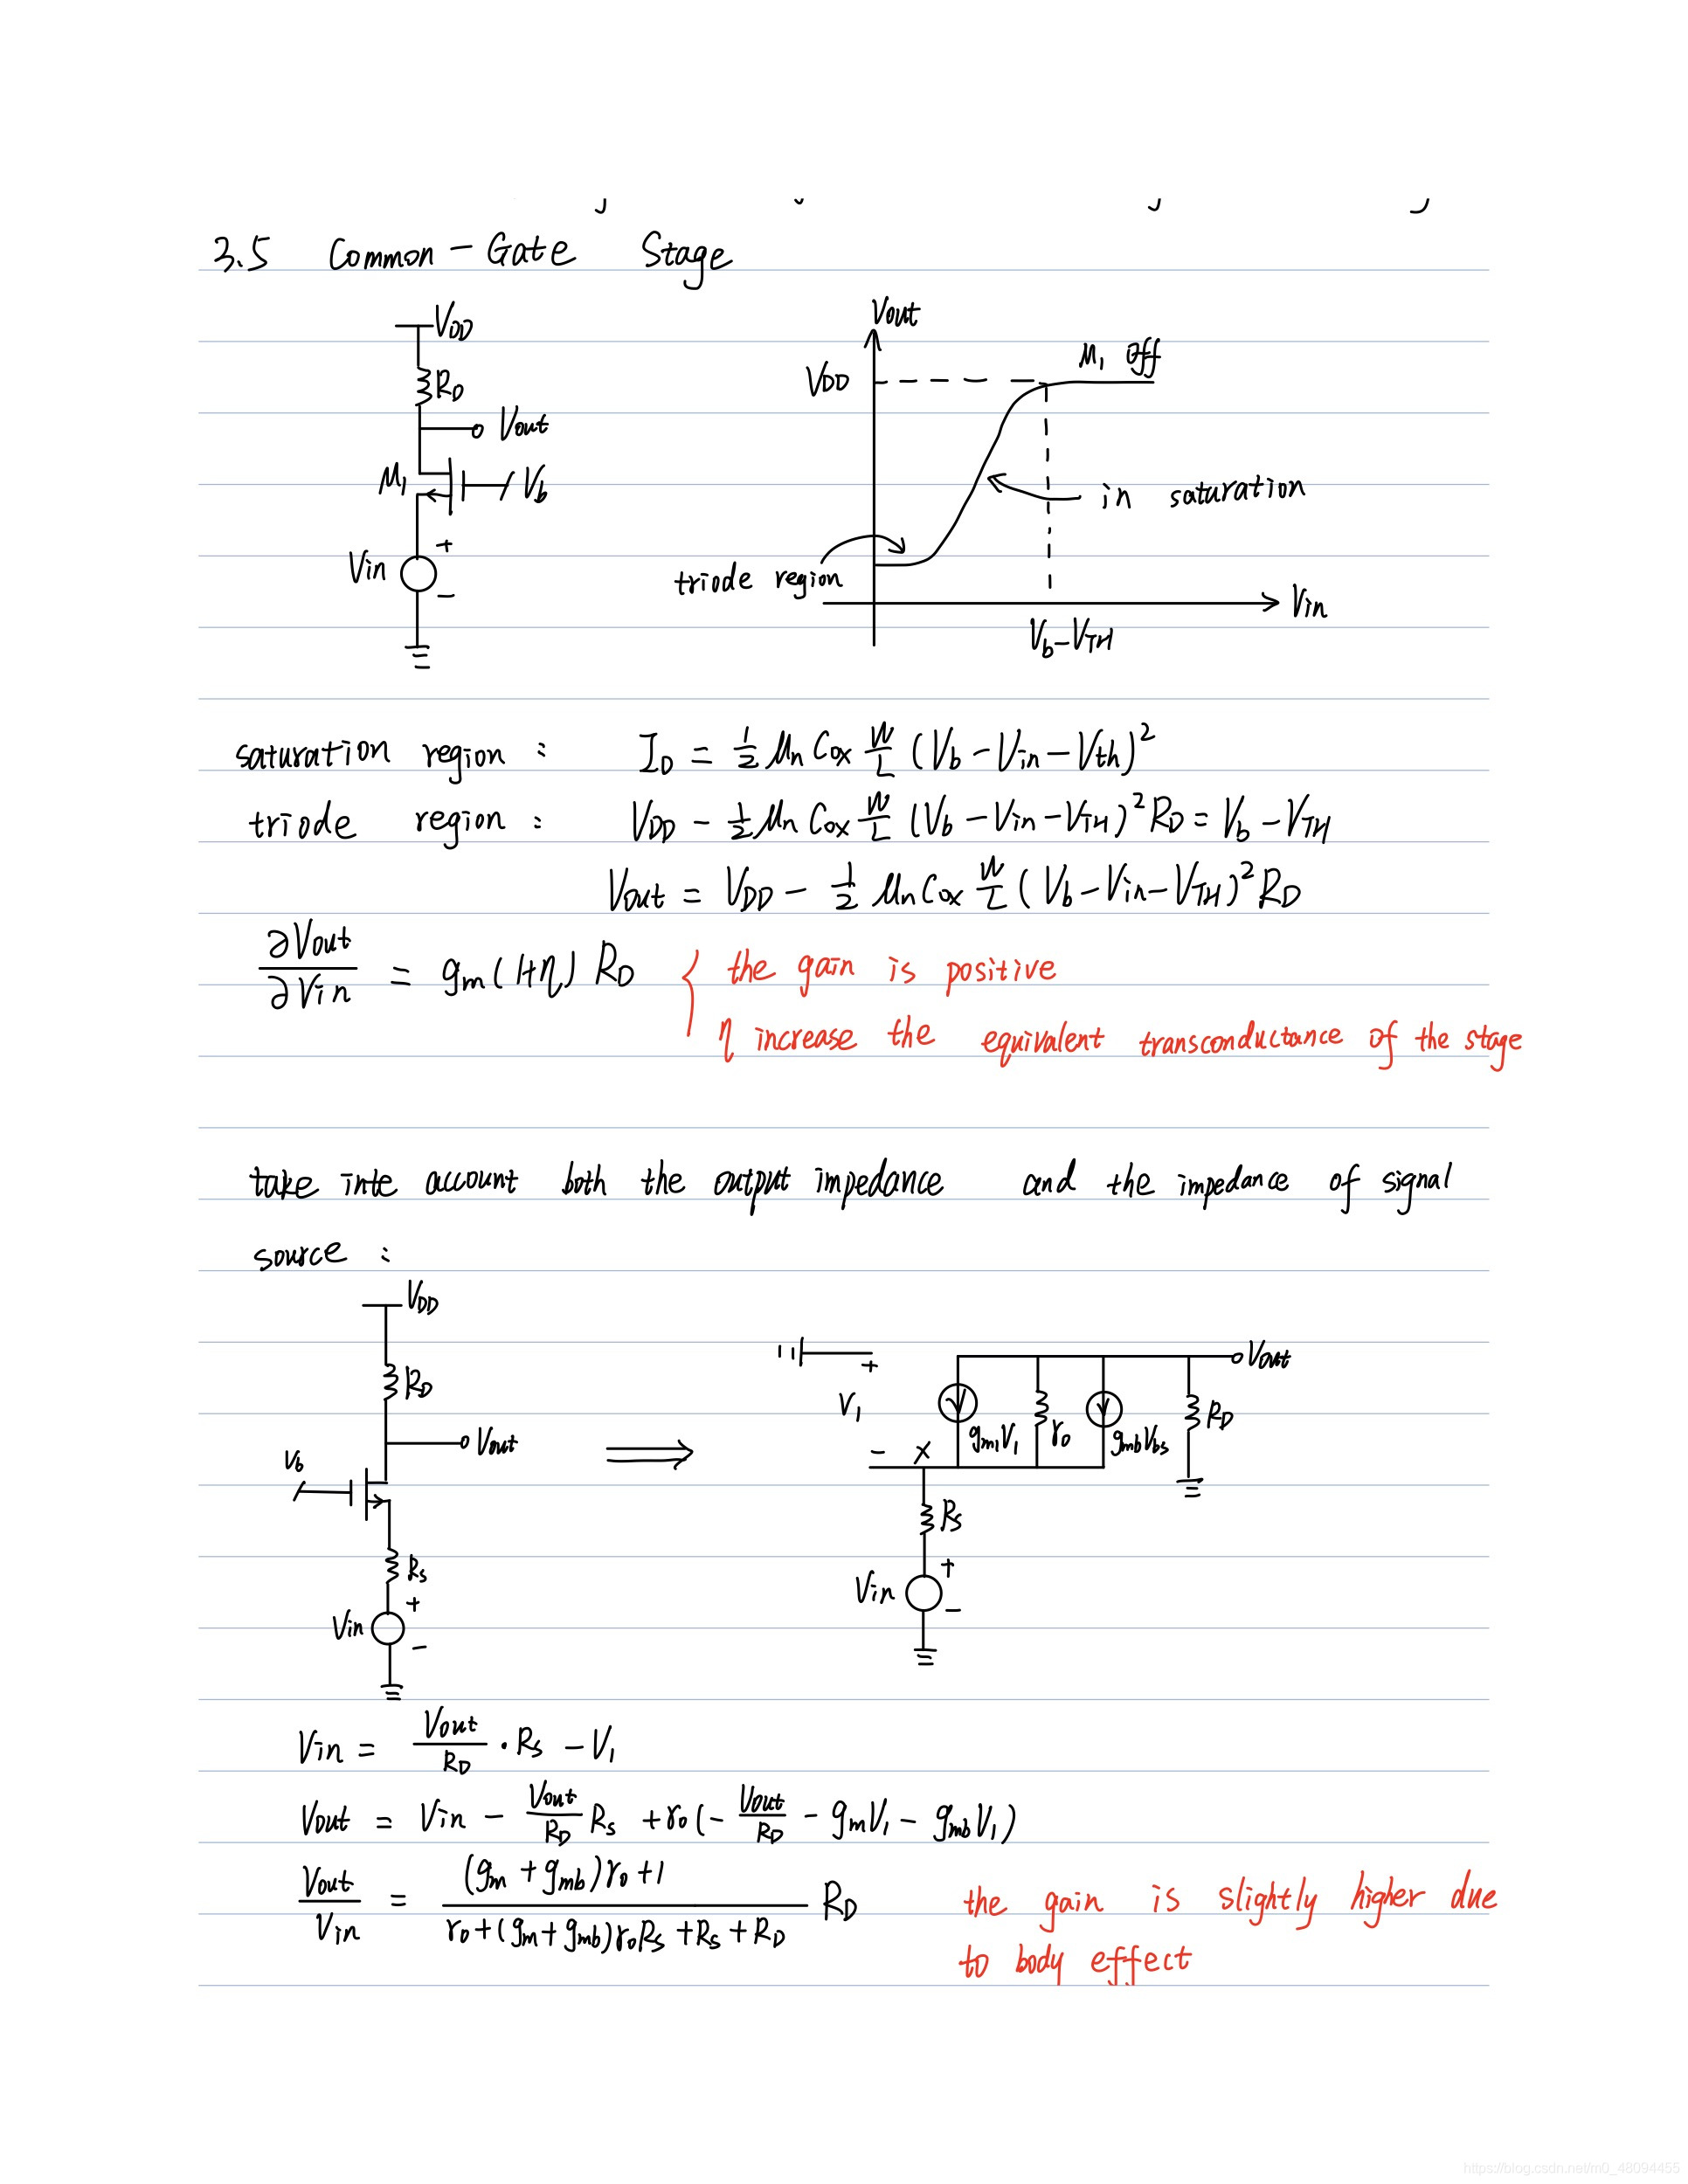 3.5 Common-Gate Stage
VDD
RD
Vout
M1
Vb
Vin
+
−
Vout
VDD
M1 off
in saturation
triode region
Vin
Vb−VTH
saturation region : ID = 1/2 μn Cox W/L (Vb − Vin − Vth)²
triode region : VDD − 1/2 μn Cox W/L (Vb − Vin − VTH)² RD = Vb − VTH
Vout = VDD − 1/2 μn Cox W/L (Vb − Vin − VTH)² RD
∂Vout/∂Vin = gm(1+η) RD { the gain is positive
η increase the equivalent transconductance of the stage
take inte account both the output impedance and the impedance of signal
source :
VDD
RD
Vout
Vb
Rs
+
Vin
−
⟹
+
V1
−
X
gm1V1
ro
gmbVbs
RD
Vout
Rs
+
Vin
−
Vin = Vout/RD · Rs − V1
Vout = Vin − Vout/RD Rs + ro(− Vout/RD − gmV1 − gmbV1)
Vout/Vin = ((gm + gmb)ro + 1)/(ro + (gm + gmb)roRs + Rs + RD) RD the gain is slightly higher due
to body effect
https://blog.csdn.net/m0_48094455